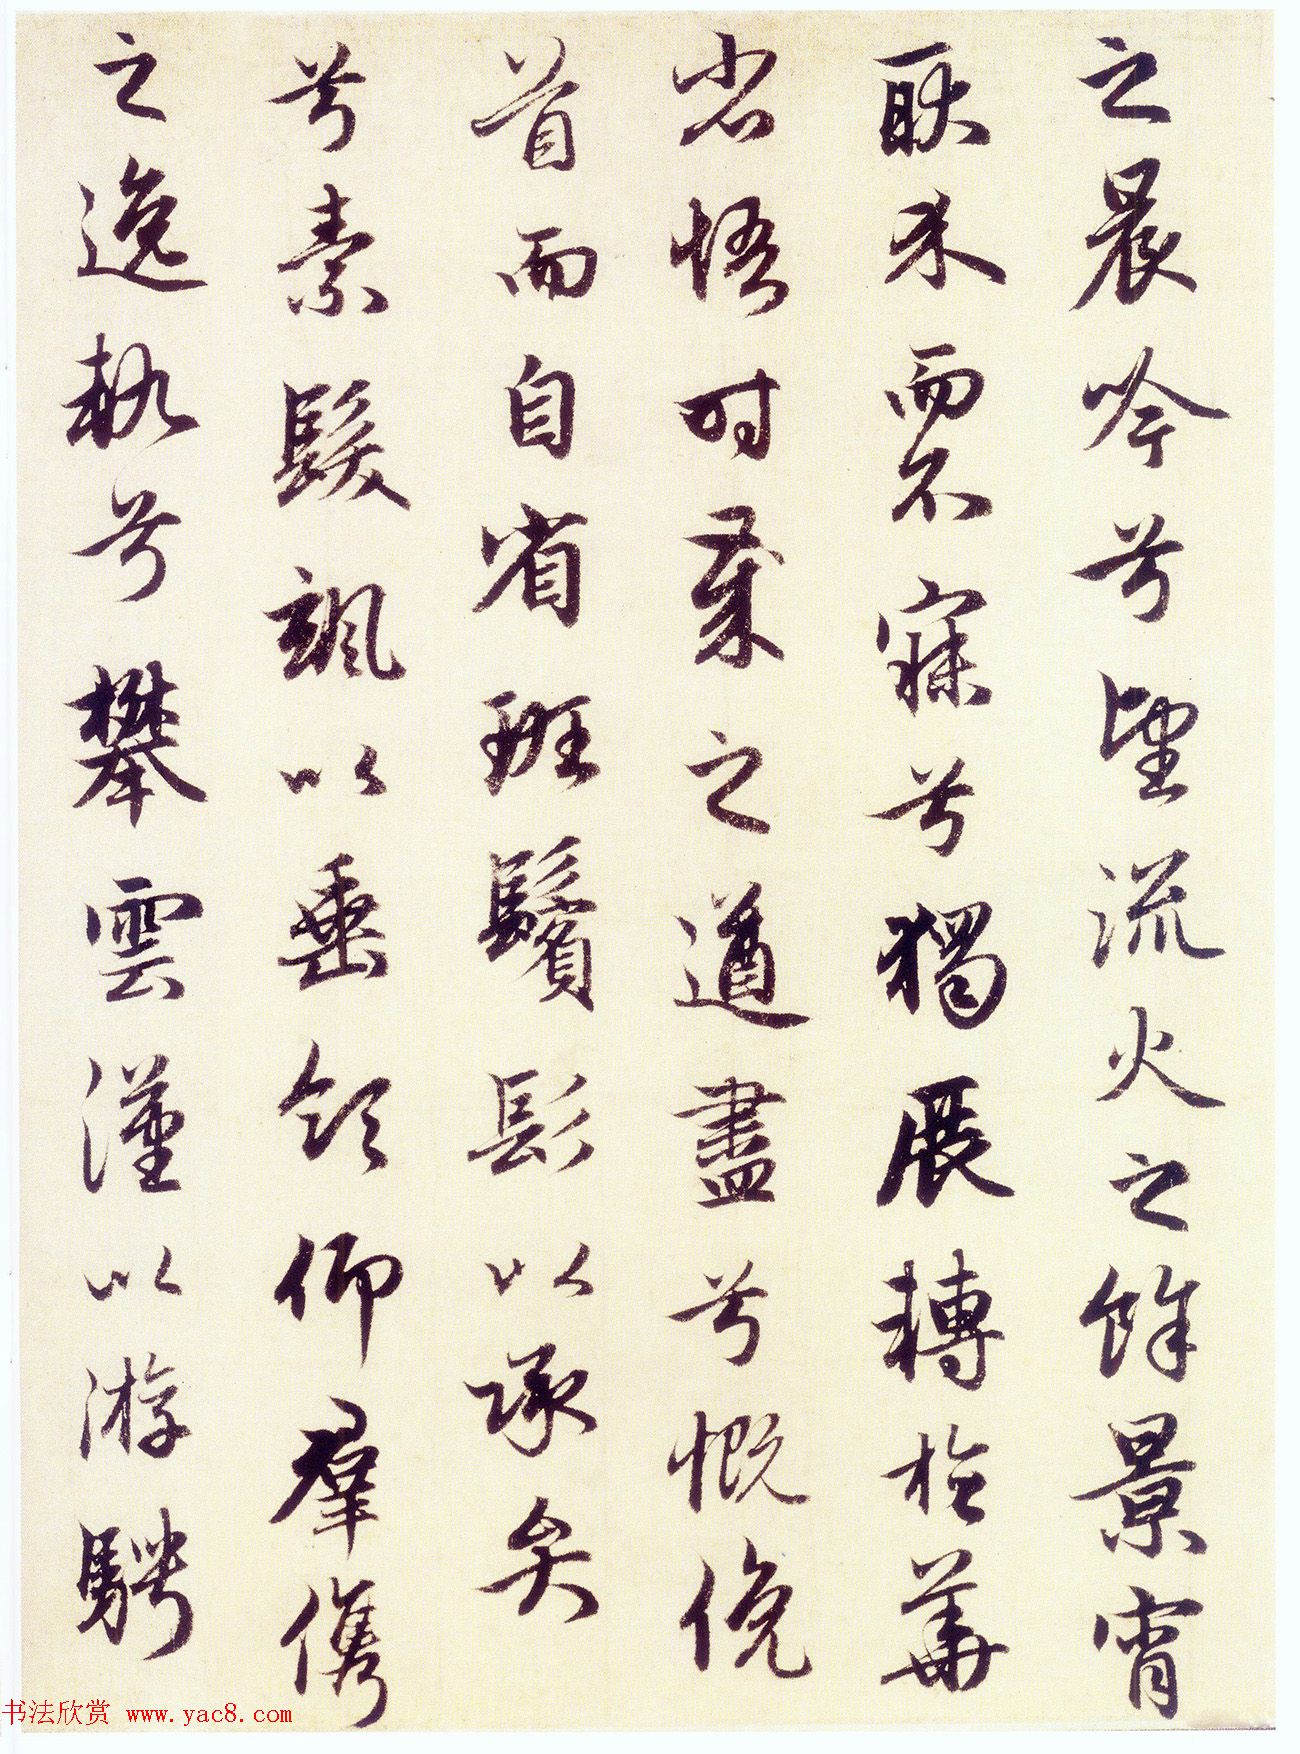 之晨吟兮望流火之餘景宵
耿木而不寐兮獨展轉於華
省悟時歲之遒盡兮慨俛
首而自省班鬢髟以承弁
兮素髮颯以垂領仰羣儁
之逸軌兮攀雲漢以游騁
书法欣赏 www.yac8.com